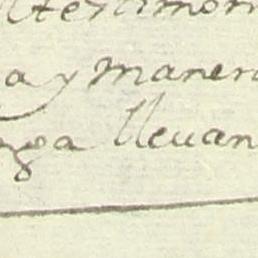 testimon
a y maner
nga lleuan